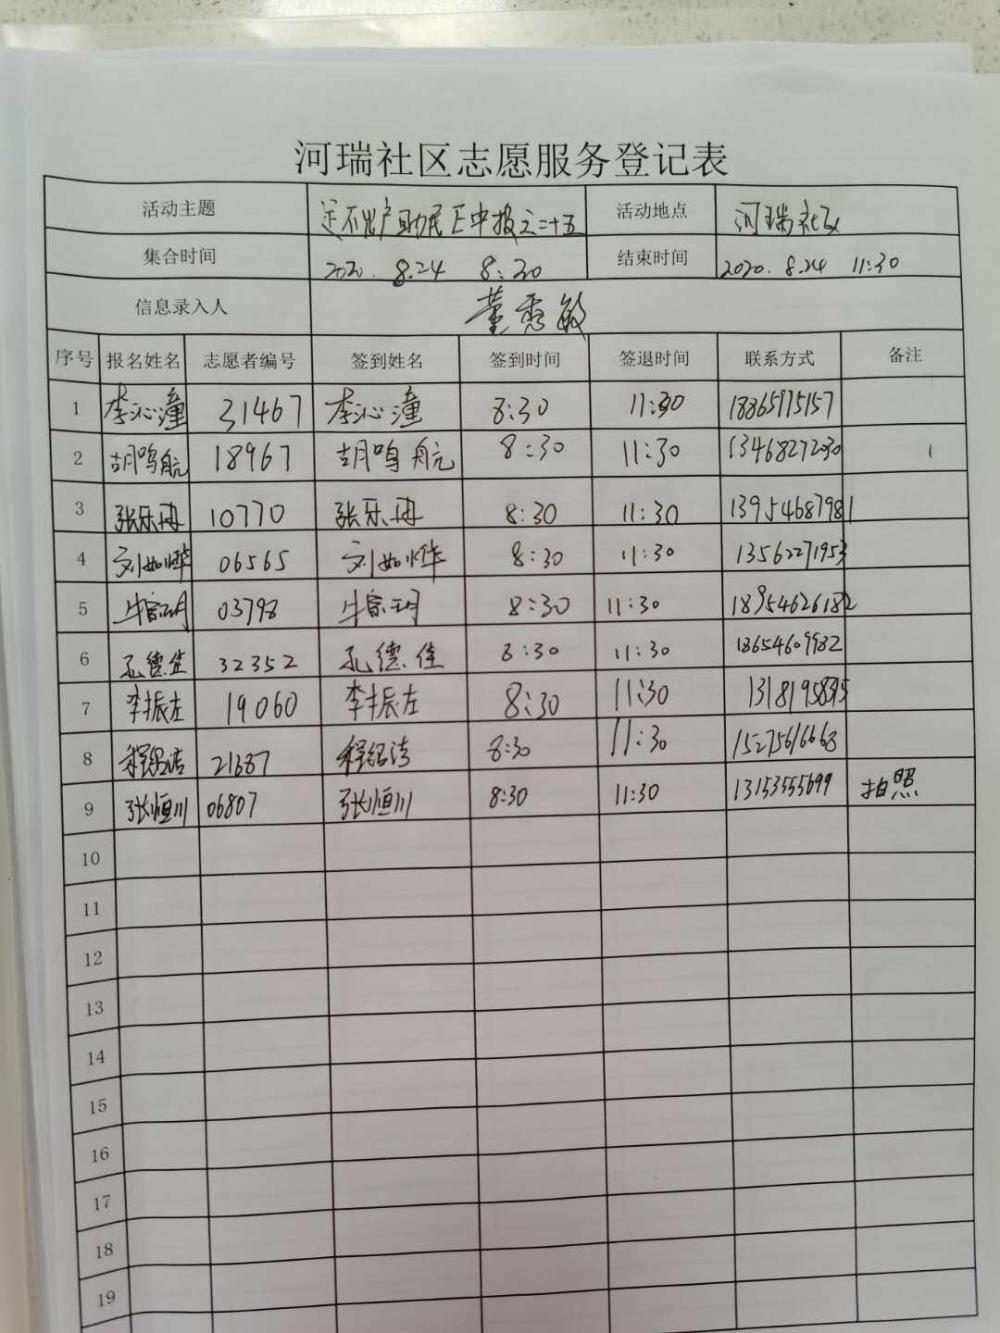 河瑞社区志愿服务登记表
活动主题 足不出户助民E申报之二十五 活动地点 河瑞社区
集合时间 2020.8.24 8:30 结束时间 2020.8.24 11:30
信息录入人 董秀敏
序号 报名姓名 志愿者编号 签到姓名 签到时间 签退时间 联系方式 备注
1 李沁潼 31467 李沁潼 8:30 11:30 18865975157
2 胡鸣航 18967 胡鸣航 8:30 11:30 13468272030
3 张乐冉 10770 张乐冉 8:30 11:30 13954687981
4 刘如烨 06565 刘如烨 8:30 11:30 13562271953
5 牛富玥 03798 牛富玥 8:30 11:30 18954626182
6 孔德佳 32352 孔德佳 8:30 11:30 18654609982
7 李振左 19060 李振左 8:30 11:30
8 程绍洁 21687 程绍洁 8:30 11:30 15275616668
9 张恒川 06807 张恒川 8:30 11:30 13153555699 拍照
10
11
12
13
14
15
16
17
18
19